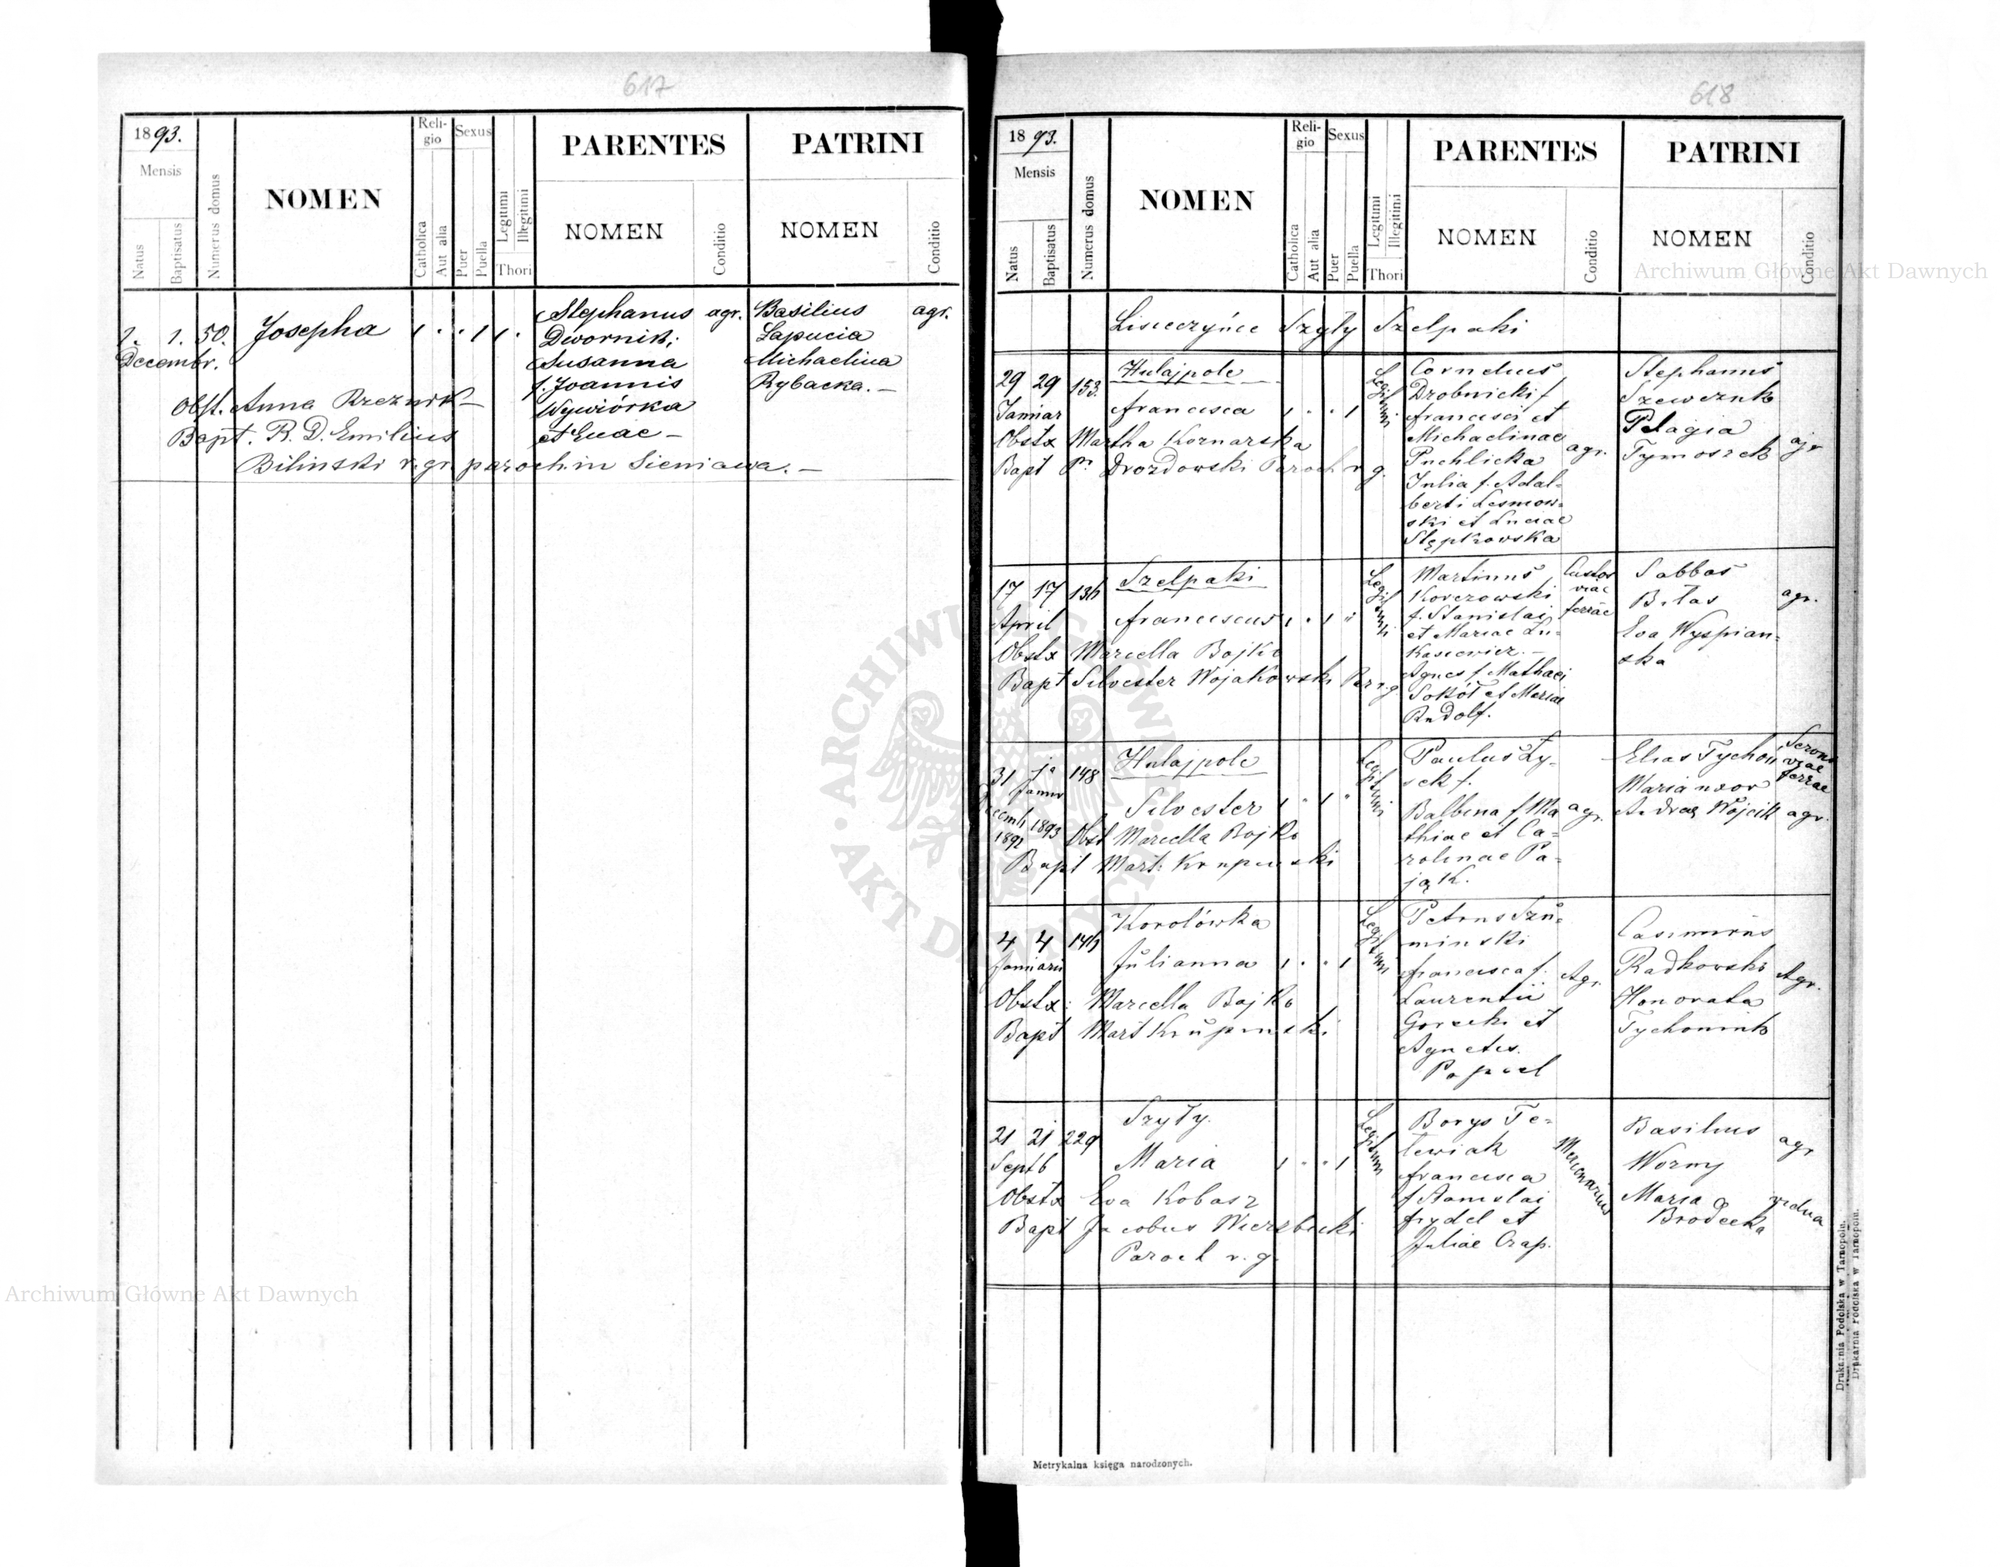 617
1893.
Mensis
Natus
Baptisatus
Numerus domus
NOMEN
Reli-
gio
Catholica
Aut alia
Sexus
Puer
Puella
Legitimi
Illegitimi
Thori
PARENTES
NOMEN
Conditio
PATRINI
NOMEN
Conditio
1. 1. 50. Josepha
Decembr.
Stephanus agr.
Dwornik;
Susanna
f. Joannis
Wywiórka
et Evae –
Basilius agr.
Łapucia
Michaelina
Rybacka. –
Obst. Anna Rzeznik –
Bapt. R. D. Emilius
Bilinski r. gr. paroch in Sieniawa. –
618
1893.
Mensis
Natus
Baptisatus
Numerus domus
NOMEN
Reli-
gio
Catholica
Aut alia
Sexus
Puer
Puella
Legitimi
Illegitimi
Thori
PARENTES
NOMEN
Conditio
PATRINI
NOMEN
Conditio
Szyły Szelpaki
Hulajpole
29 29 153
Januar Francisca
Obstx Martha Kornarska
Bapt Drozdowski Paroch r. g.
Legitimi
Cornelius
Drobnicki f
Francisci et
Michaelinae
Puchlicka agr.
Julia f. Adal-
berti Lesniow-
ski et Luciae
Stępkowska
Stephanus
Pelagia
agr
Szelpaki
17 17 136
April Franciscus
Obstx Marcella Bojko
Bapt Silvester Wojakowski Par r. g
Legitimi
Martinus
Korczowski
f. Stanislai
et Mariae Łu-
kasiewicz. –
Agnes f. Mathaei
Sokół et Mariae
Rudolf.
Custos
viae
ferrae
Sabbas
Biłas
Eva Wyspian-
ska
agr.
Hulajpole
31 Januar 148
Decemb 1893
1892
Silvester
Obst Marcella Bojko
Bapt Mart: Krupinski
Legitimi
Paulus Ły-
sek f.
Balbina f Ma
thiae et Ca-
rolinae Pa-
jąk.
agr.
Elias Tychon
Maria uxor
Andreae Wojcik agr.
viae
ferrae
Korolówka
4 4 146
Januarii Julianna
Obstx: Marcella Bojko
Bapt Mart Krupinski
Legitimi
Petrus Szu-
minski
Francisca f.
Laurentii
Gorzcki et
Agnetis
Popiel
Agr.
Casimirus
Radkowski
Honorata
Agr.
Szyły.
21 21 229
Septb Maria
Obstx Eva Kobasz
Bapt Jacobus Wierzbicki
Paroch r. g.
Legitimi
Borys Te-
lewiak
Francisca
f Stanislai
Frydel et
Juliae Czap.
Mercenarius
Basilius
Worny
agr
Maria
Brodecka
vidua
Metrykalna księga narodzonych.
Drukarnia Podolska w Tarnopolu.
Drukarnia Podolska w Tarnopolu.
Archiwum Główne Akt Dawnych
Archiwum Główne Akt Dawnych
ARCHIWUM GŁÓWNE
AKT DAWNYCH